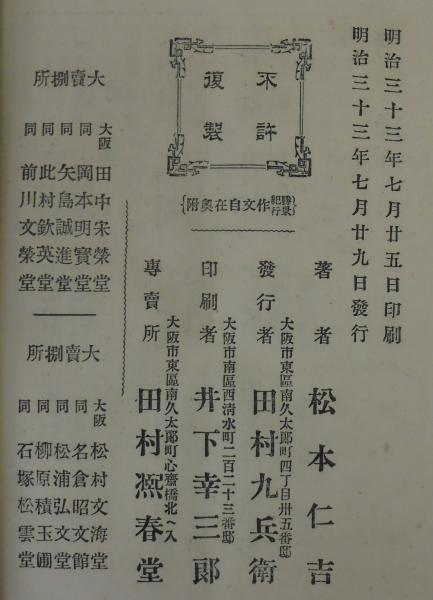 明治三十三年七月廿五日印刷
明治三十三年七月廿九日發行
不許
復製
{勝景紀行作文自在奥附}
著者　松本仁吉
大阪市東區南久太郎町四丁目卅五番邸
發行者　田村九兵衛
大阪市南區西清水町二百二十三番邸
印刷者　井下幸三郎
大阪市東區南久太郎町心齋橋北ヘ入
專賣所　田村凞春堂
大賣捌所
大阪　田中宋榮堂
同　岡本明寶堂
同　矢島誠進堂
同　此村欽英堂
同　前川文榮堂
大賣捌所
大阪　松村文海堂
同　名倉昭文館
同　松浦弘文堂
同　柳原積玉圃
同　石塚松雲堂